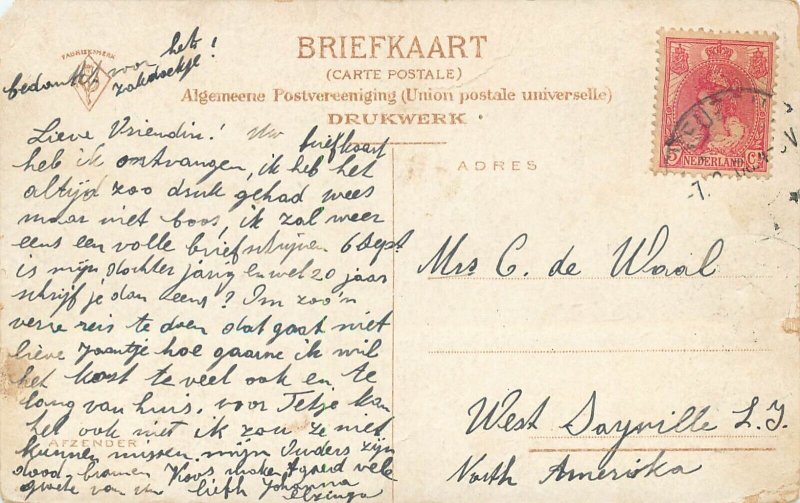 bedankt voor het
zakdoekje!
FABRIEKSMERK
BRIEFKAART
(CARTE POSTALE)
Algemeene Postvereeniging (Union postale universelle)
DRUKWERK
ADRES
5 NEDERLAND Ct
Lieve Vriendin! Uw briefkaart
heb ik ontvangen, ik heb het
altijd zoo druk gehad wees
maar niet boos, ik zal weer
eens een volle brief schrijven 6 Sept
is mijn dochter jarig en wel 20 jaar
schrijf je dan eens? Im zoo'n
verre reis te doen dat gaat niet
lieve Jaantje hoe gaarne ik wil
het kost te veel ook en te
lang van huis, voor Tetje kan
het ook niet ik zou ze niet
kunnen missen mijn Ouders zijn
dood, Koos maken 't goed vele
groete van Uw liefh Johanna
Elzinga
AFZENDER
Mrs C. de Waal
West Sayville L. I.
North Amerika